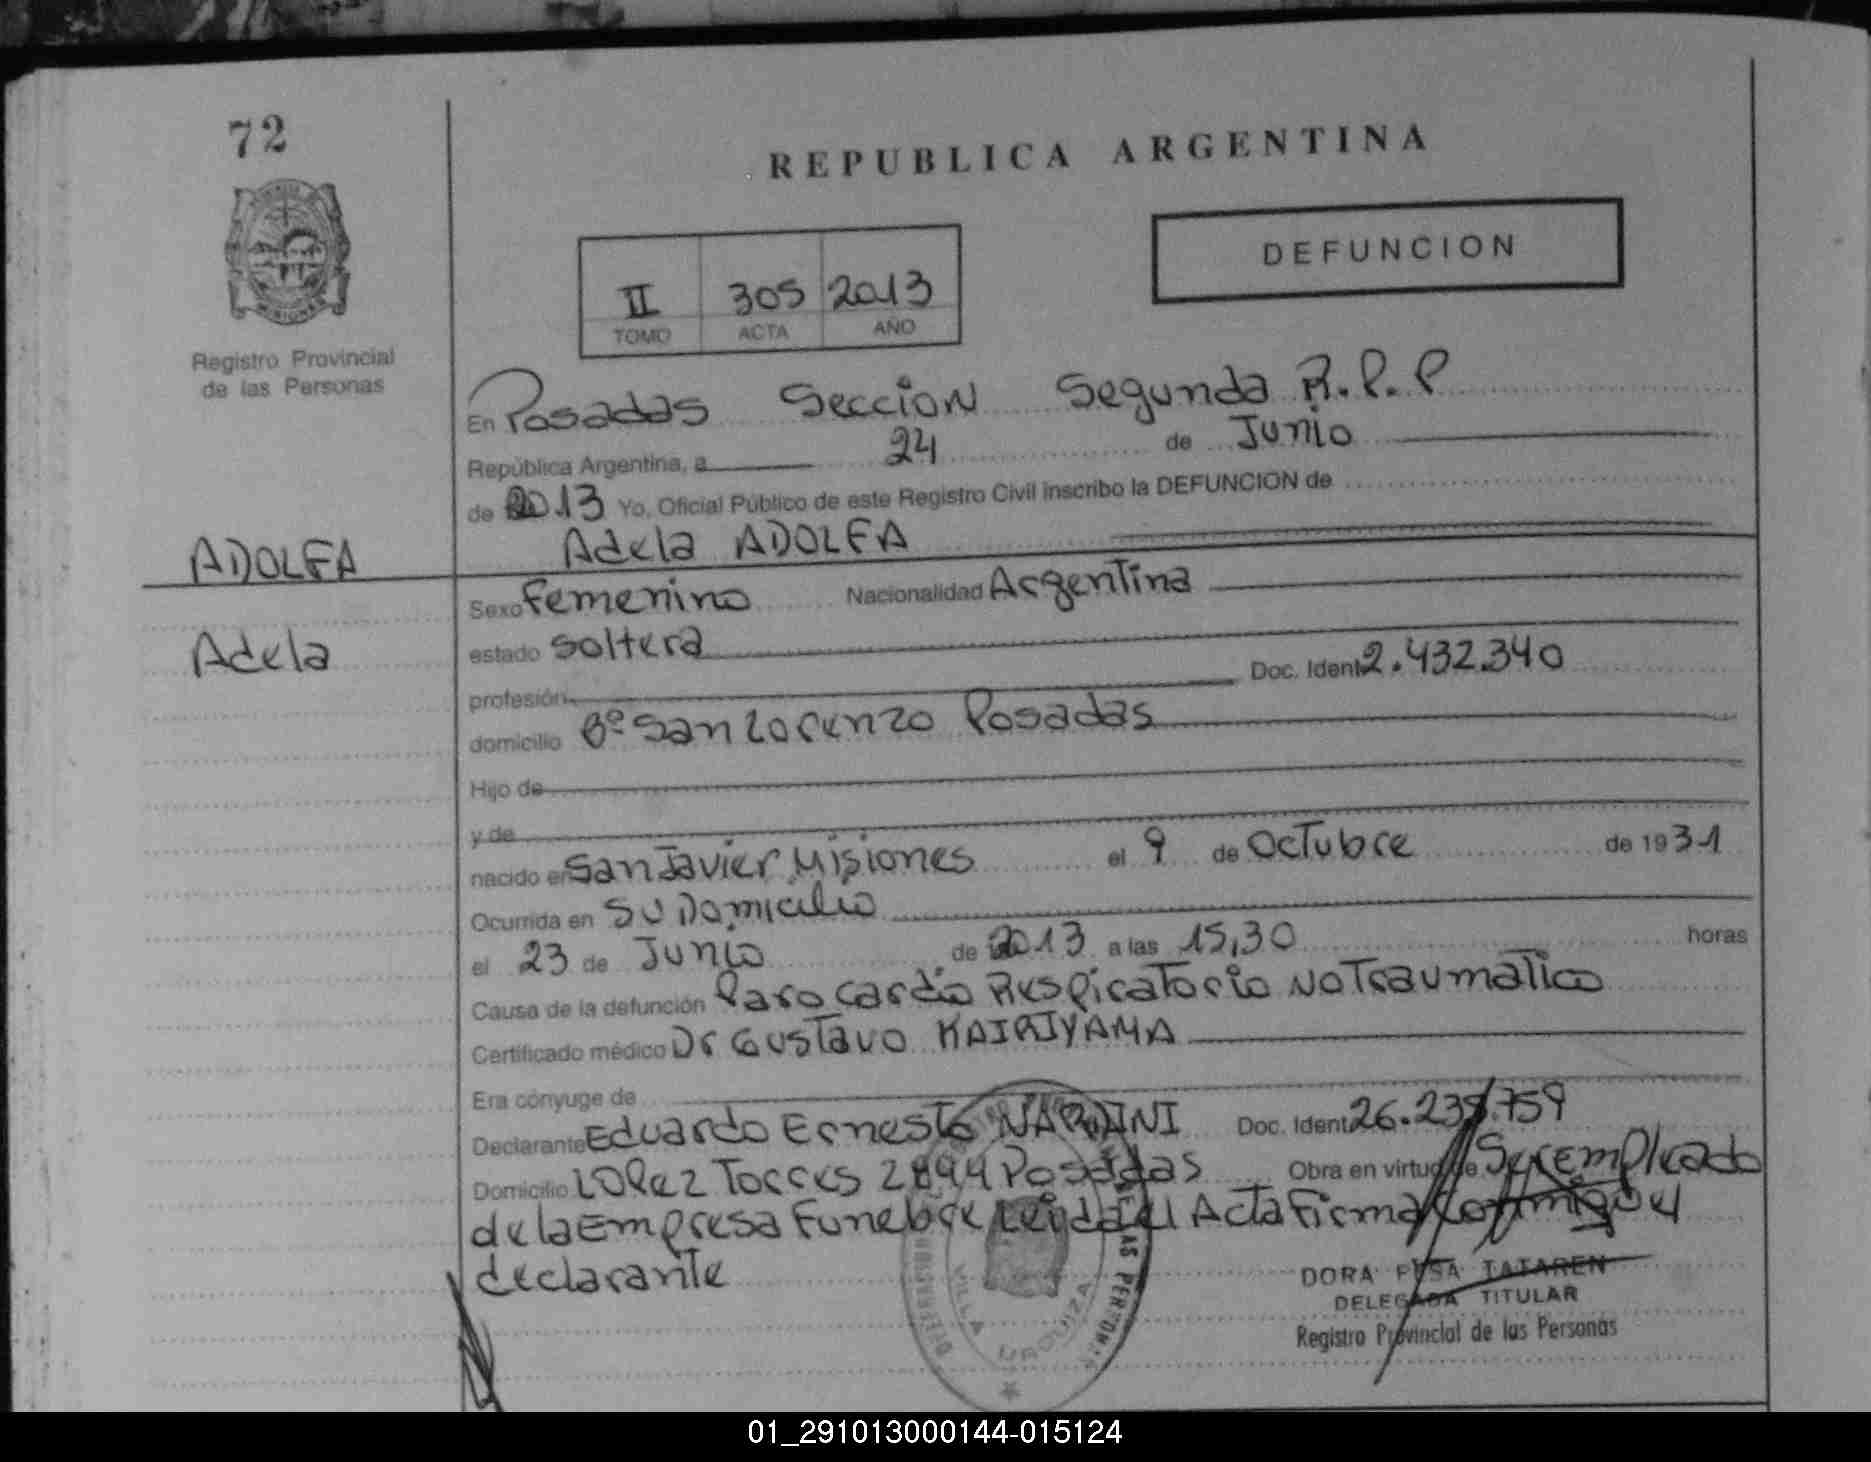 72
REPUBLICA ARGENTINA
DEFUNCION
II 305 2013
TOMO ACTA AÑO
Registro Provincial
de las Personas
En Posadas Seccion Segunda R.P.P
República Argentina, a 24 de Junio
de 2013 Yo, Oficial Público de este Registro Civil inscribo la DEFUNCION de
Adela ADOLFA
ADOLFA
Adela
Sexo Femenino Nacionalidad Argentina
estado soltera
profesión Doc. Ident 2.432.340
domicilio Bº San Lorenzo Posadas
Hijo de
y de
nacido en San Javier Misiones el 9 de Octubre de 1931
Ocurrida en su Domicilio
el 23 de Junio de 2013 a las 15,30 horas
Causa de la defunción Paro cardio Respiratorio no Traumatico
Certificado médico Dr Gustavo KAIRIYAMA
Era cónyuge de
Declarante Eduardo Ernesto NARDINI Doc. Ident 26.239.759
Domicilio Lopez Torres 2894 Posadas Obra en virtud de Ser empleado
de la Empresa Funebre Leida el Acta Firma conmigo el
declarante
VILLA URQUIZA
DORA TATAREN
DELEGADA TITULAR
Registro Provincial de las Personas
01_291013000144-015124